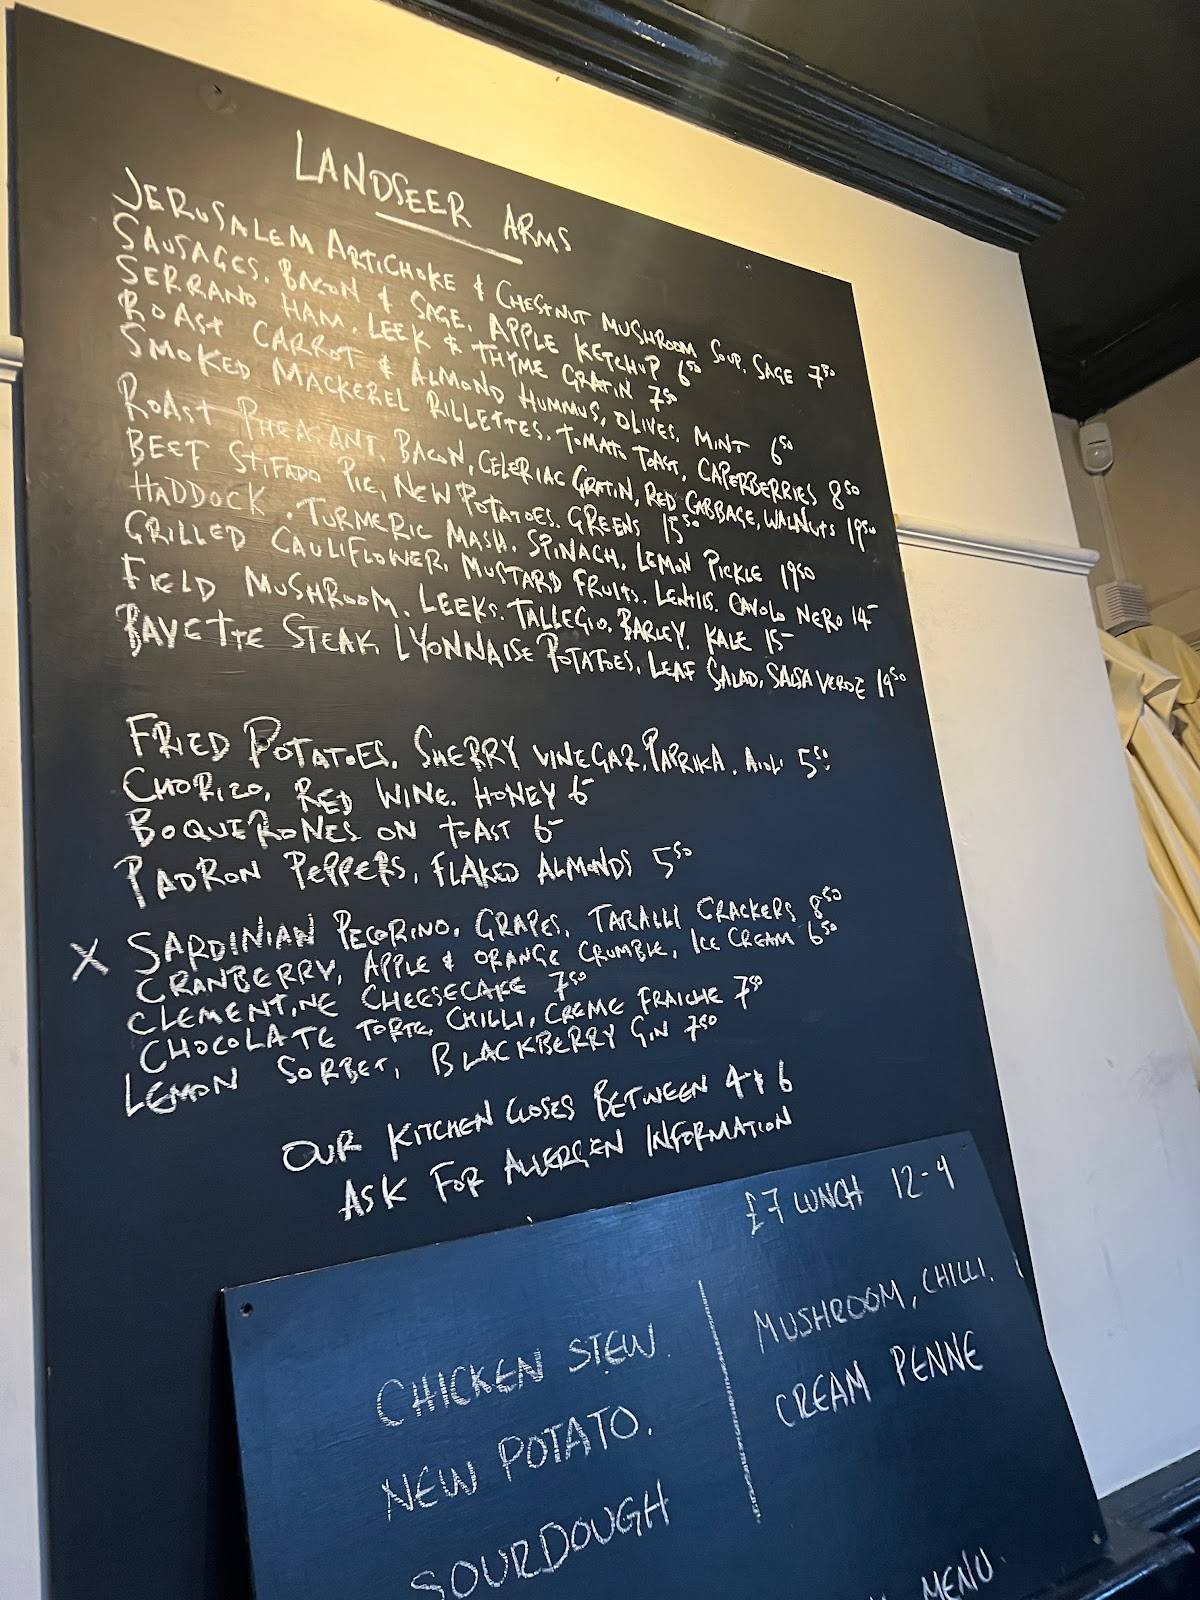 LANDSEER ARMS
JERUSALEM ARTICHOKE & CHESTNUT MUSHROOM SOUP, SAGE 7 50
SAUSAGES, BACON & SAGE, APPLE KETCHUP 6 50
SERRANO HAM, LEEK & THYME GRATIN 7 50
ROAST CARROT & ALMOND HUMMUS, OLIVES, MINT 6 50
SMOKED MACKEREL RILLETTES, TOMATO TOAST, CAPERBERRIES 8 50
ROAST PHEASANT, BACON, CELERIAC GRATIN, RED CABBAGE, WALNUTS 19 50
BEEF STIFADO PIE, NEW POTATOES, GREENS 15 50
HADDOCK, TURMERIC MASH, SPINACH, LEMON PICKLE 19 50
GRILLED CAULIFLOWER, MUSTARD FRUITS, LENTILS, CAVOLO NERO 14-
FIELD MUSHROOM, LEEKS, TALLEGIO, BARLEY, KALE 15-
BAVETTE STEAK, LYONNAISE POTATOES, LEAF SALAD, SALSA VERDE 19 50
FRIED POTATOES, SHERRY VINEGAR, PAPRIKA, AIOLI 5 50
CHORIZO, RED WINE, HONEY 6-
BOQUERONES ON TOAST 6-
PADRON PEPPERS, FLAKED ALMONDS 5 50
X SARDINIAN PECORINO, GRAPES, TARALLI CRACKERS 8 50
CRANBERRY, APPLE & ORANGE CRUMBLE, ICE CREAM 6 50
CLEMENTINE CHEESECAKE 7 50
CHOCOLATE TORTE, CHILLI, CREME FRAICHE 7 50
LEMON SORBET, BLACKBERRY GIN 7 50
OUR KITCHEN CLOSES BETWEEN 4 & 6
ASK FOR ALLERGEN INFORMATION
£7 LUNCH 12-4
CHICKEN STEW.
NEW POTATO.
SOURDOUGH
MUSHROOM, CHILLI.
CREAM PENNE
MENU.